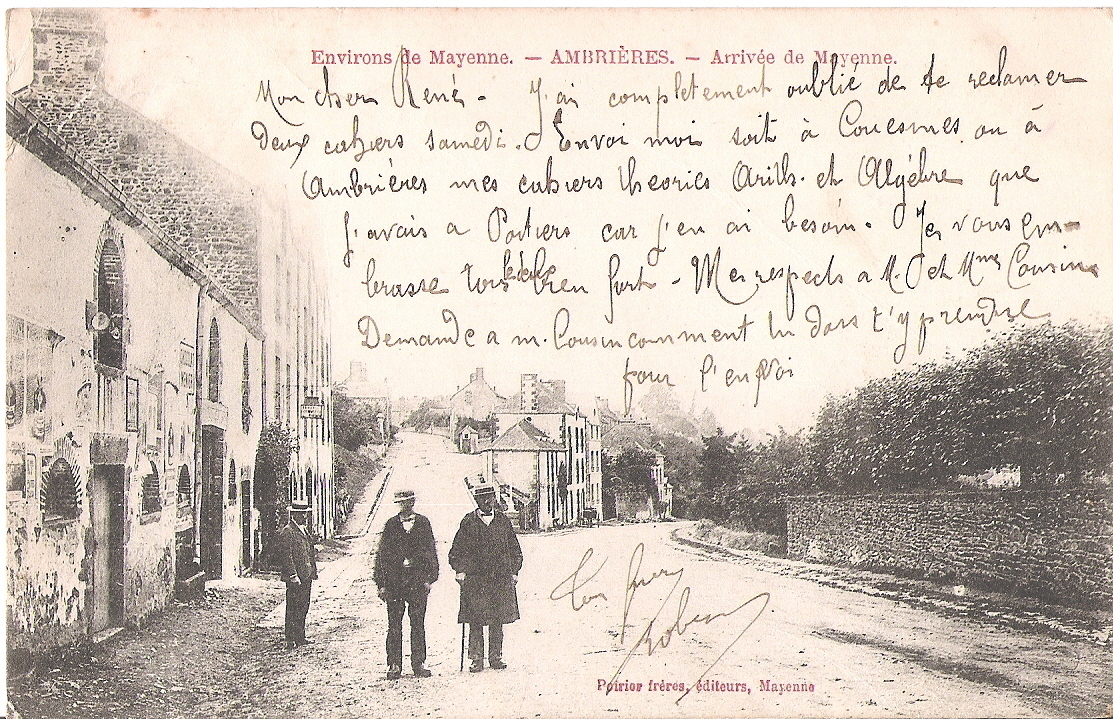 Environs de Mayenne. — AMBRIÈRES. — Arrivée de Mayenne.
Mon cher René - J'ai completement oublié de te reclamer
deux cahiers samedi. Envoi moi soit à Couesmes ou à
Ambrières mes cahiers theories Arith. et Algèbre que
j'avais a Poitiers car j'en ai besoin. Je vous em-
brasse tous bien fort - Mes respects a M. et Mme Cousin
Demande a m. Cousin comment tu dois t'y prendre
pour l'envoi
Ton frere
Robert
Poirier frères, éditeurs, Mayenne